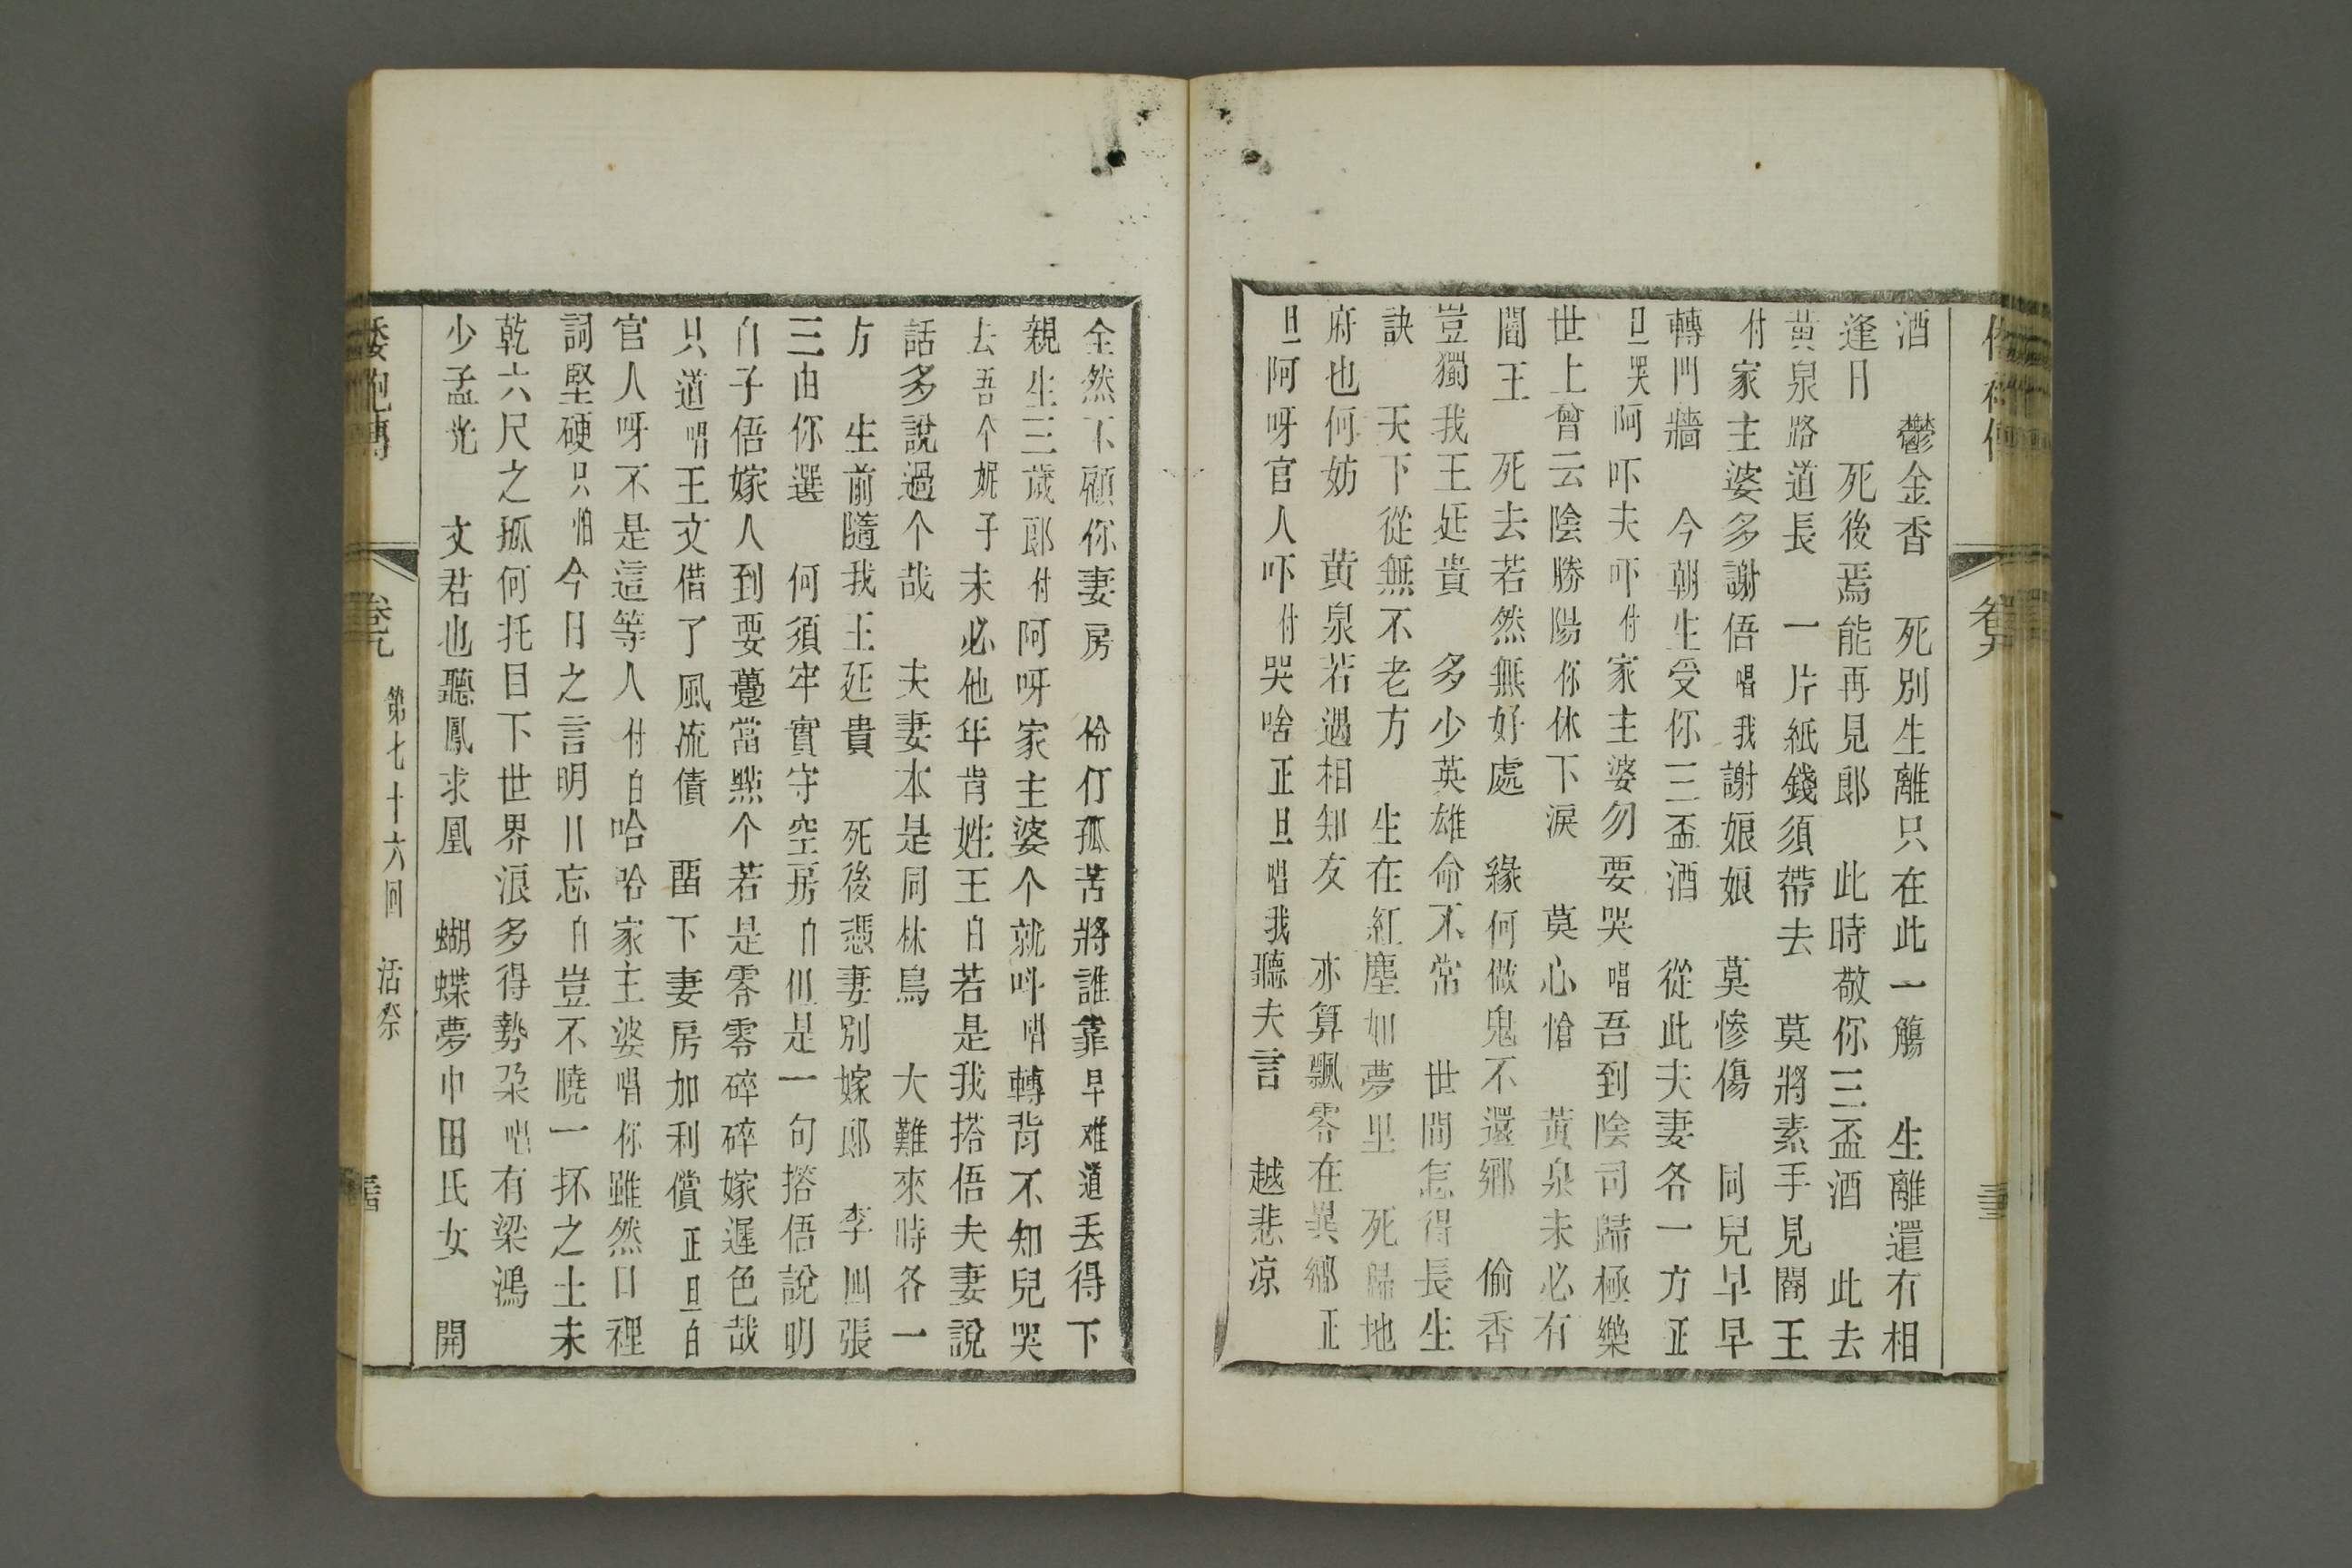 卷九
酒 鬱金香 死別生離只在此一觴 生離還有相
逢日 死後焉能再見郎 此時敬你三盃酒 此去
黃泉路道長 一片紙錢須帶去 莫將素手見閻王
付家主婆多謝悟唱我謝娘娘 莫慘傷 同兒早早
轉門牆 今朝生受你三盃酒 從此夫妻各一方正
旦哭阿吓夫吓付家主婆勿要哭唱吾到陰司歸極樂
世上曾云陰勝陽你休下淚 莫心愴 黃泉未必有
閻王 死去若然無好處 緣何做鬼不還鄉 偷香
豈獨我王廷貴 多少英雄命不常 世間怎得長生
訣 天下從無不老方 生在紅塵如夢里 死歸地
府也何妨 黃泉若遇相知友 亦算飄零在異鄉正
旦阿呀官人吓付哭啥正旦唱我聽夫言 越悲凉
全然不顧你妻房 伶仃孤苦將誰靠早难道丢得下
親生三歲郎付阿呀家主婆个就呌唱轉背不知兒哭
去吾个妮子未必他年肯姓王白若是我搭悟夫妻說
話多說過个哉 夫妻本是同林鳥 大難來時各一
方 生前隨我王廷貴 死後憑妻別嫁郎 李四張
三由你選 何須牢實守空房白但是一句搭悟說明
白子悟嫁人到要躉當㸃个若是零零碎碎嫁遲色哉
只道唱王文借了風流債 畱下妻房加利償正旦白
官人呀不是這等人付白哈哈家主婆唱你雖然口裡
詞堅硬只怕今日之言明日忘白豈不曉一抔之土未
乾六尺之孤何托目下世界浪多得勢朶唱有梁鴻
少孟光 文君也聽鳳求凰 蝴蝶夢中田氏女 開
倭袍傳 卷九 第七十六回 活祭